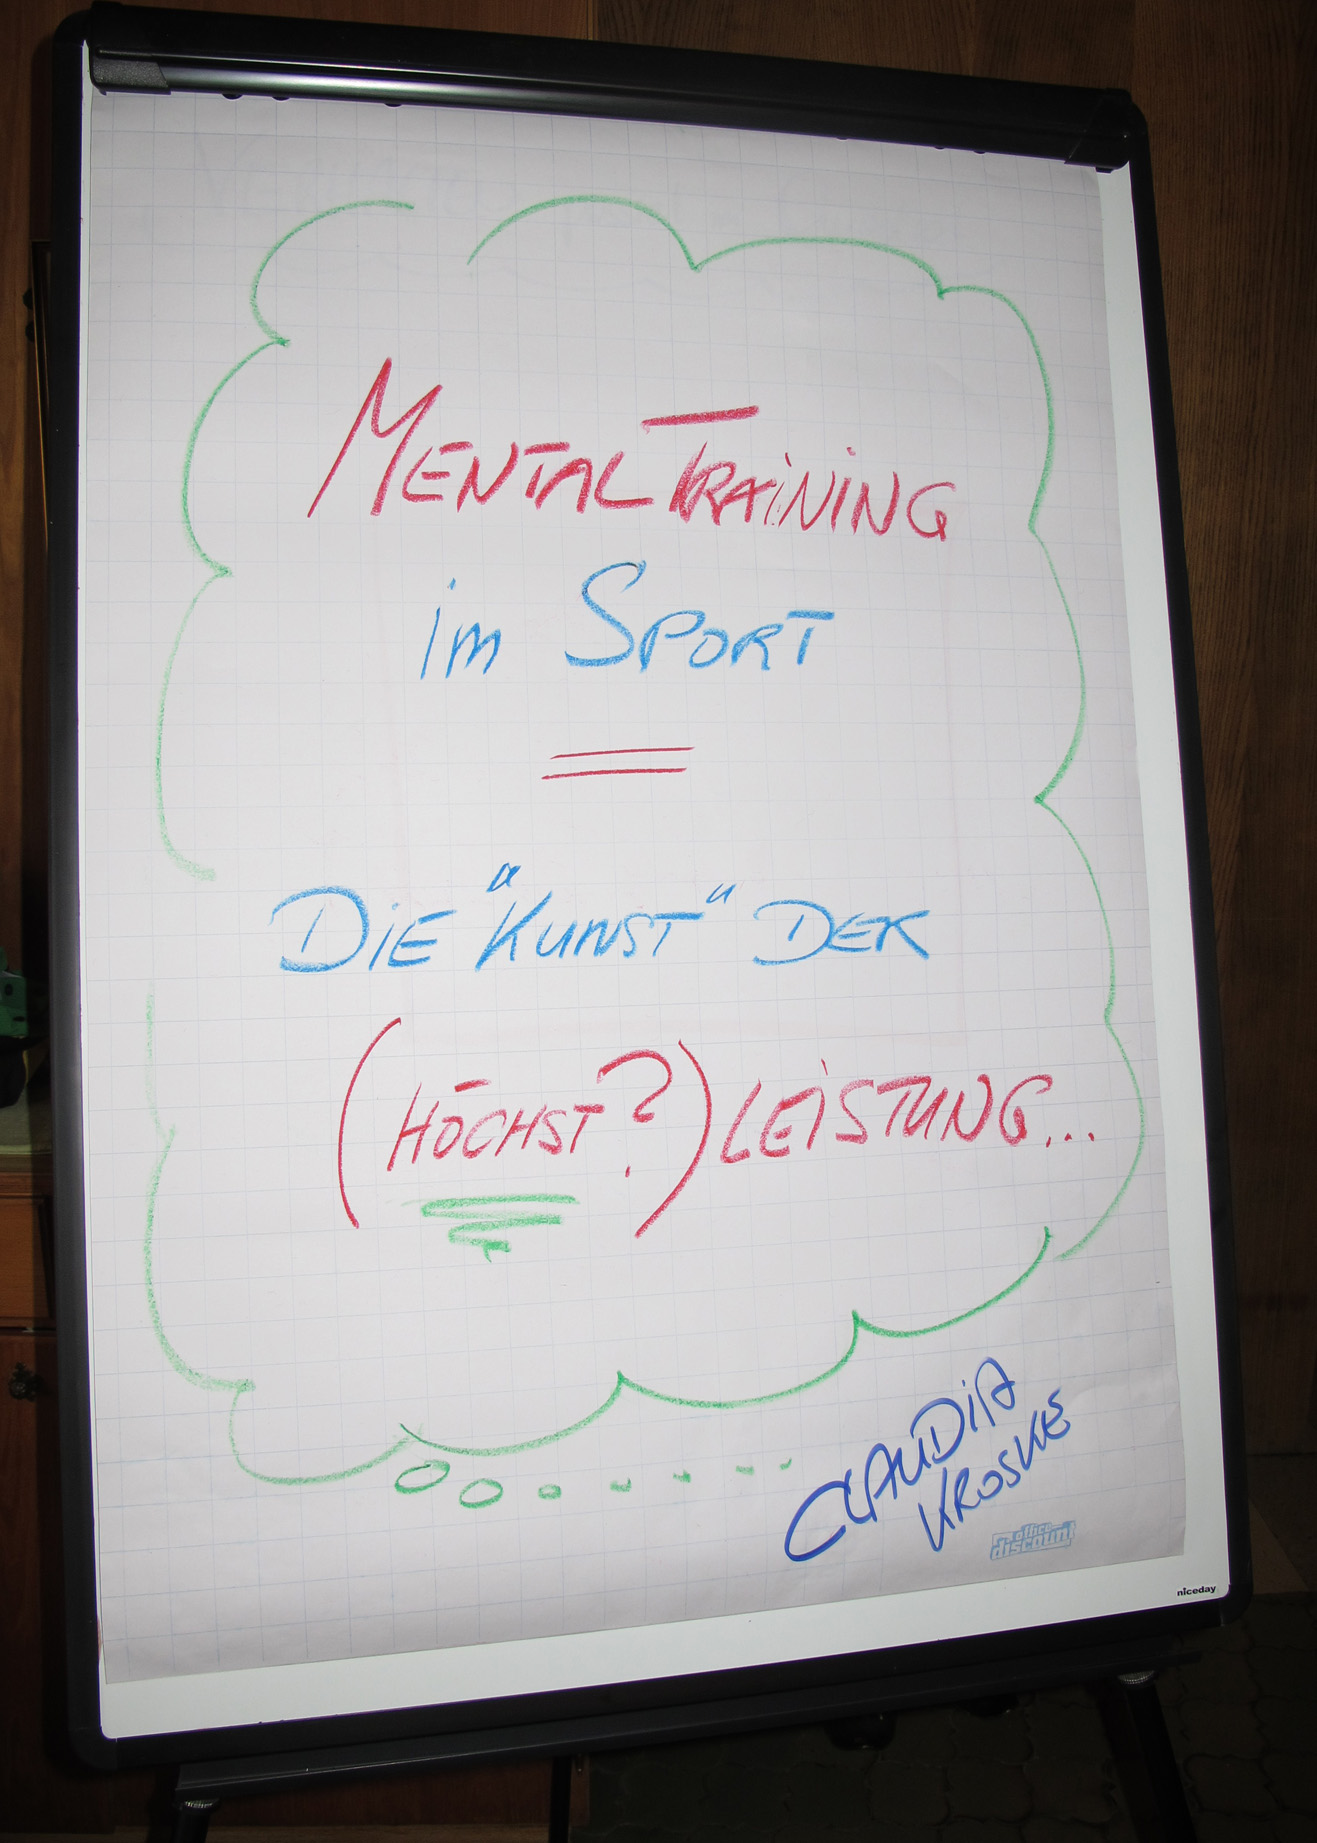 MENTALTRAINING
im SPORT
=
DIE "KUNST" DER
(HÖCHST?) LEISTUNG...
CLAUDIA
KROSKE
office
discount
niceday